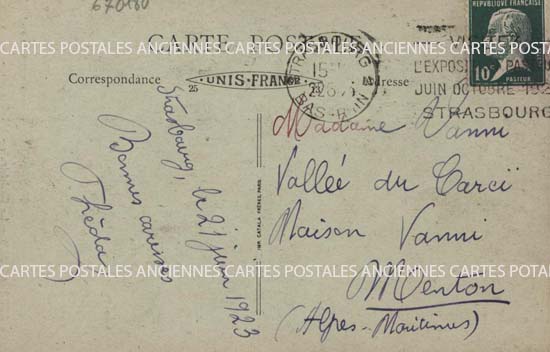 670180
RÉPUBLIQUE FRANÇAISE
10c
PASTEUR
CARTE POSTALE
Correspondance
25
UNIS-FRANCE
23
Adresse
STRASBOURG
15
22 6
BAS-RHIN
VISITEZ
L'EXPOSITION PASTEUR
JUIN OCTOBRE 192
STRASBOURG
Strasbourg, le 21 juin 1923
Bonnes caresses
IMP. CATALA FRÈRES, PARIS
Madame Vanni
Vallée du Carcï
Maison Vanni
Menton
(Alpes-Maritimes)
CARTES POSTALES ANCIENNES CARTES POSTALES ANCIENNES CARTES POSTALES
CARTES POSTALES ANCIENNES CARTES POSTALES ANCIENNES CARTES POSTALES